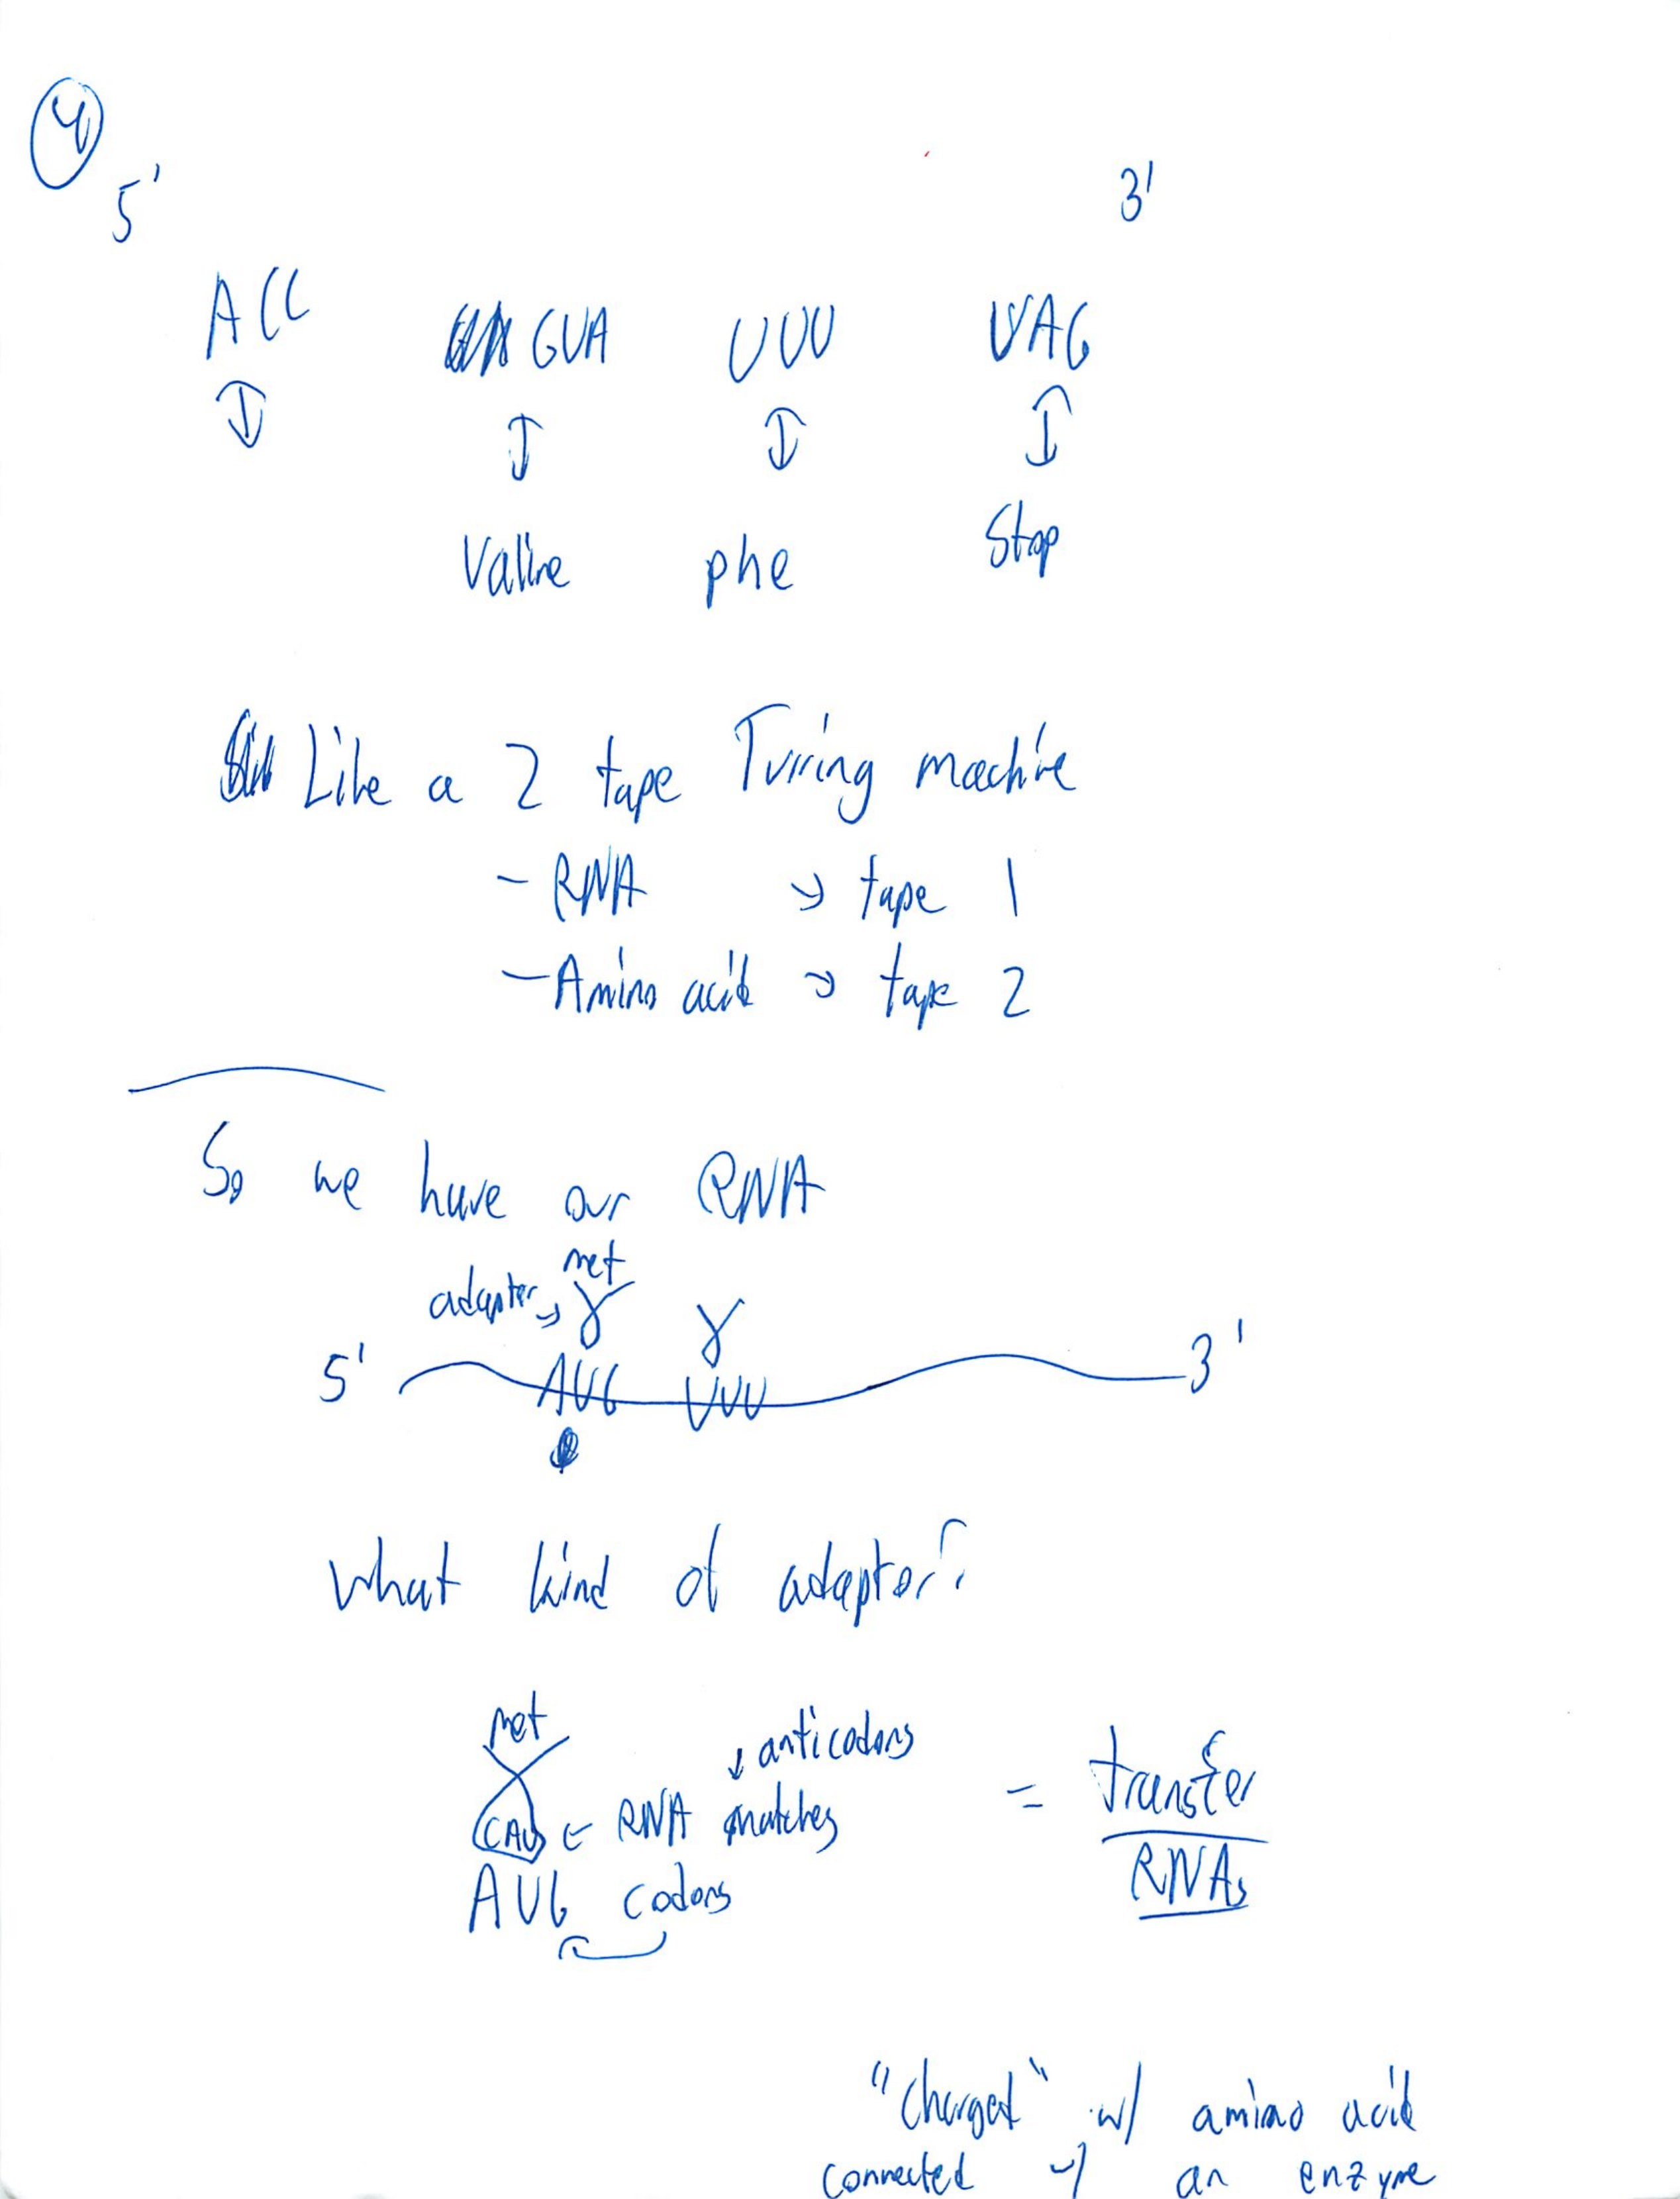 4
5' 3'
ACC GUA UUU UAG
Valine phe Stop
Like a 2 tape Turing machine
- RNA → tape 1
- Amino acid → tape 2
So we have our RNA
met
adapter →
5' AUG UUU 3'
What kind of adaptor?
Met
↓ anticodons
CAU ← RNA matches = transfer
AUG codons RNAs
"Charged" w/ amino acid
connected w/ an enzyme